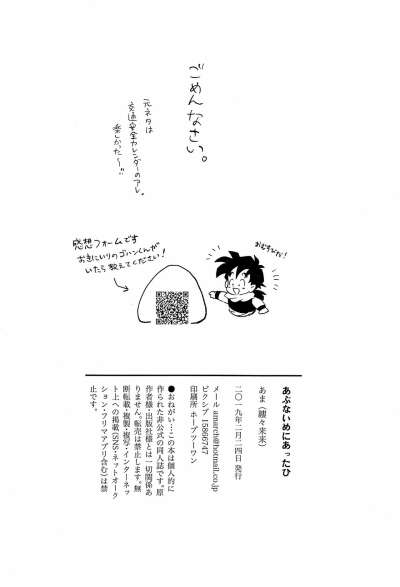 ごめんなさい。
元ネタは
交通安全カレンダーのアレ。
楽しかった〜!!
感想フォームです
お気にいりのゴハンくんが
いたら教えてください!
おむすびだ!
あぶないめにあったひ
あま(續々来来)
二〇一九年二月二四日 発行
メール amarch@hotmail.co.jp
ピクシブ 15866747
印刷所 ホープツーワン
●おねがい…この本は個人的に
作られた非公式の同人誌です。原
作者様・出版社様とは一切関係あ
りません。転売は禁止します。無
断転載・複製・複写・インターネッ
ト上への掲載(SNS・ネットオーク
ション・フリマアプリ含む)は禁
止です。